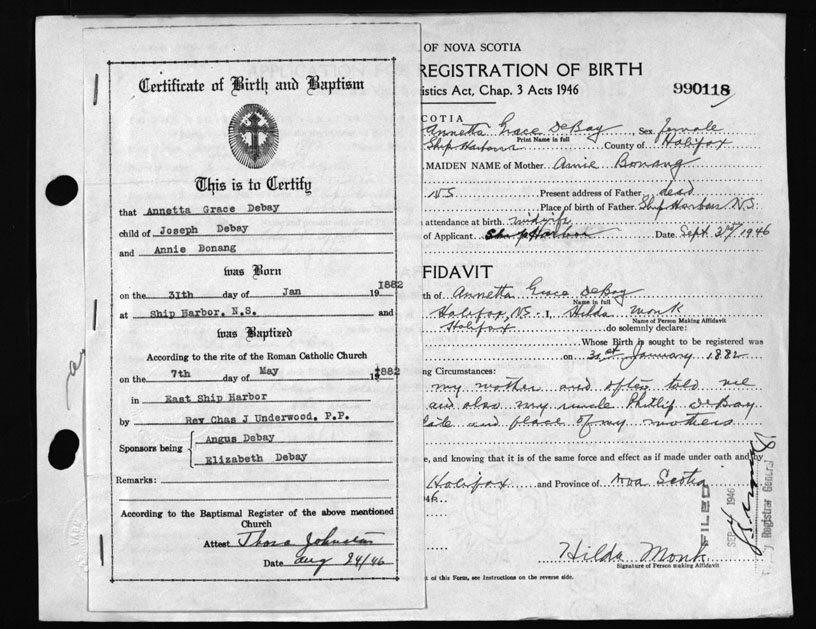 Certificate of Birth and Baptism
This is to Certify
that Annetta Grace Debay
child of Joseph Debay
and Annie Bonang
was Born
on the 31th day of Jan 19 1882
at Ship Harbor. N.S. and
was Baptized
According to the rite of the Roman Catholic Church
on the 7th day of May 1882
in East Ship Harbor
by Rev Chas J Underwood. P.P.
Sponsors being Angus Debay
Elizabeth Debay
Remarks:
According to the Baptismal Register of the above mentioned
Church
Attest Thora Johnston
Date Aug 24/46
OF NOVA SCOTIA
REGISTRATION OF BIRTH
istics Act, Chap. 3 Acts 1946
990118
COTIA
Annetta Grace DeBay, Sex female
Print Name in full
Ship Harbour County of Halifax
MAIDEN NAME of Mother Annie Bonang
NS Present address of Father dead
Place of birth of Father Ship Harbour N.S.
attendance at birth. midwife
of Applicant Ship Harbor Date Sept 3rd 1946
FFIDAVIT
th of Annetta Grace DeBay
Name in full
Halifax, NS - I, Hilda Monk
Name of Person Making Affidavit
Halifax do solemnly declare:
Whose Birth is sought to be registered was
on 31st January 1882
ng Circumstances:
my mother and often told me
and also my uncle Phillip DeBay
date and place of my mothers
e, and knowing that it is of the same force and effect as if made under oath and by
Halifax and Province of Nova Scotia
46
FILED
SEP 4 1946
Registrar General
Hilda Monk
Signature of Person making Affidavit
t of this Form, see Instructions on the reverse side.